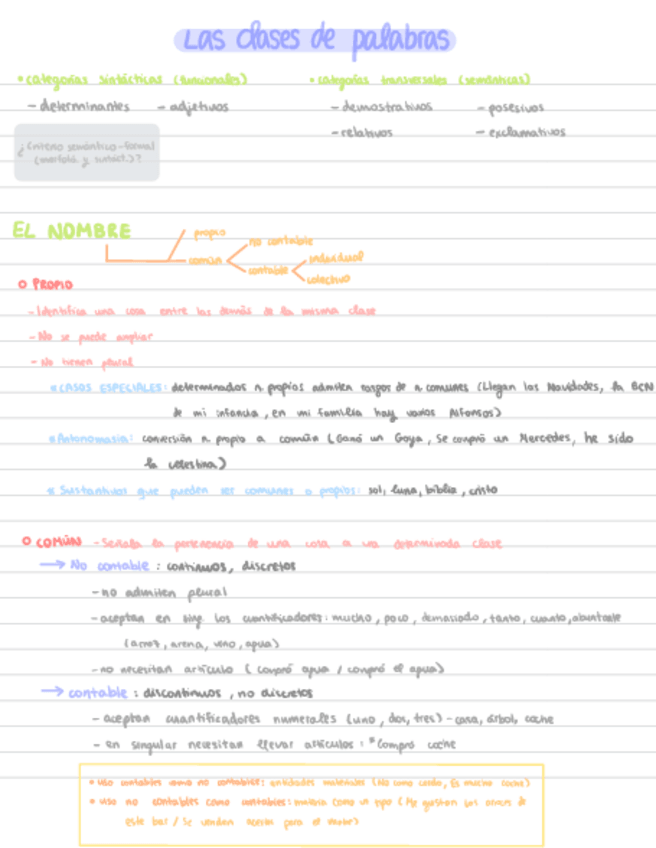 Las clases de palabras
• categorías sintácticas (funcionales)
• categorías transversales (semánticas)
- determinantes - adjetivos
- demostrativos - posesivos
- relativos - exclamativos
¿Criterio semántico-formal
(morfoló. y sintáct.)?
EL NOMBRE
propio
común
no contable
contable
individual
colectivo
O PROPIO
- Identifica una cosa entre las demás de la misma clase
- No se puede ampliar
- No tienen plural
* CASOS ESPECIALES: determinados n. propios admiten rasgos de n. comunes (Llegan las Navidades, la BCN
de mi infancia, en mi familia hay varios Alfonsos)
* Antonomasia: conversión n. propio a común (Ganó un Goya, Se compró un Mercedes, he sido
la celestina)
* Sustantivos que pueden ser comunes o propios: sol, luna, biblia, cristo
O COMÚN - Señala la pertenencia de una cosa a una determinada clase
→ No contable: continuos, discretos
- no admiten plural
- aceptan en sing. los cuantificadores: mucho, poco, demasiado, tanto, cuanto, abundante
(arroz, arena, vino, agua)
- no necesitan artículo (compró agua / compró el agua)
→ contable: discontinuos, no discretos
- aceptan cuantificadores numerales (uno, dos, tres) - casa, árbol, coche
- en singular necesitan llevar artículos: *Compro coche
• uso contables como no contables: entidades materiales (No como cerdo, Es mucho coche)
• uso no contables como contables: materia como un tipo (Me gustan los arroces de
este bar / Se venden aceites para el motor)